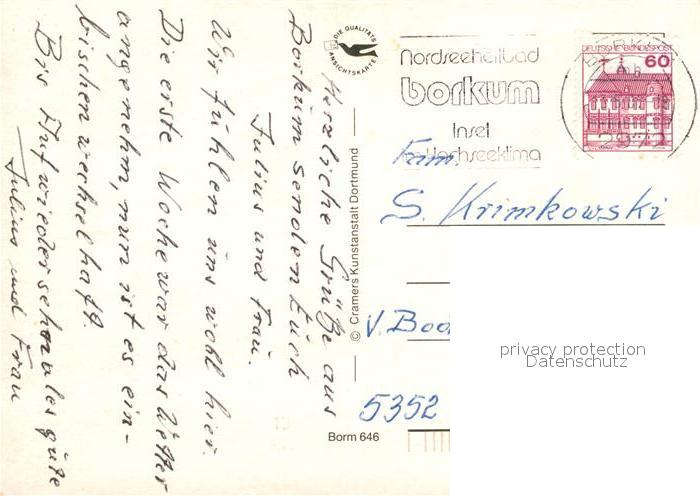 Herzliche Grüße aus
Borkum senden Euch
Julius und Frau.
Wir fühlen uns wohl hier.
Die erste Woche war das Wetter
angenehm, nun ist es ein-
bischen wechselhaft.
Bis Aufwiedersehn alles gute
Julius und Frau
DIE QUALITÄTS
ANSICHTSKARTE
© Cramers Kunstanstalt Dortmund
Borm 646
Nordseeheilbad
borkum
Insel
Hochseeklima
DEUTSCHE BUNDESPOST
60
Fam.
S. Krimkowski
5352
privacy protection
Datenschutz